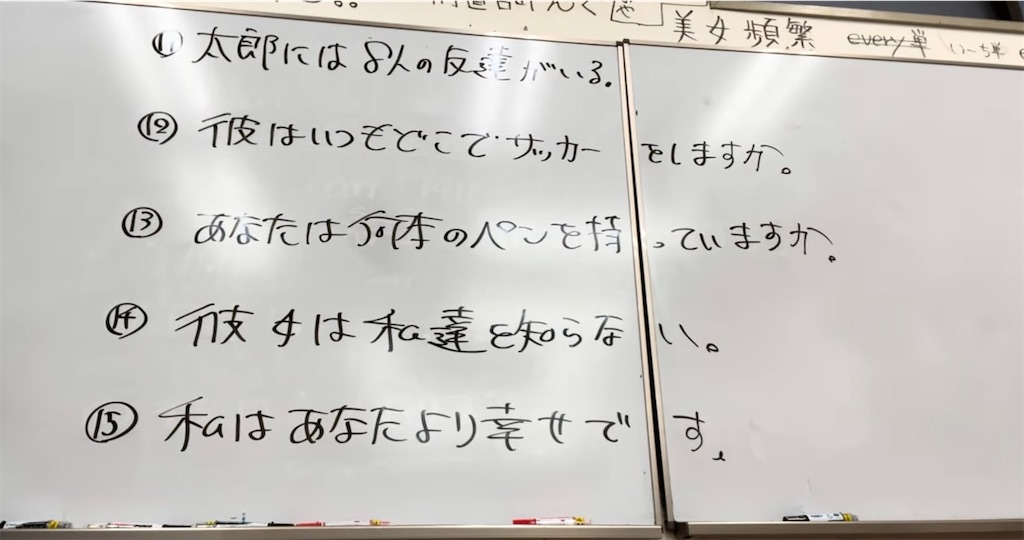 美女頻繁 every単
⑪ 太郎には8人の友達がいる。
⑫ 彼はいつもどこでサッカーをしますか。
⑬ あなたは何本のペンを持っていますか。
⑭ 彼女は私達を知らない。
⑮ 私はあなたより幸せです。